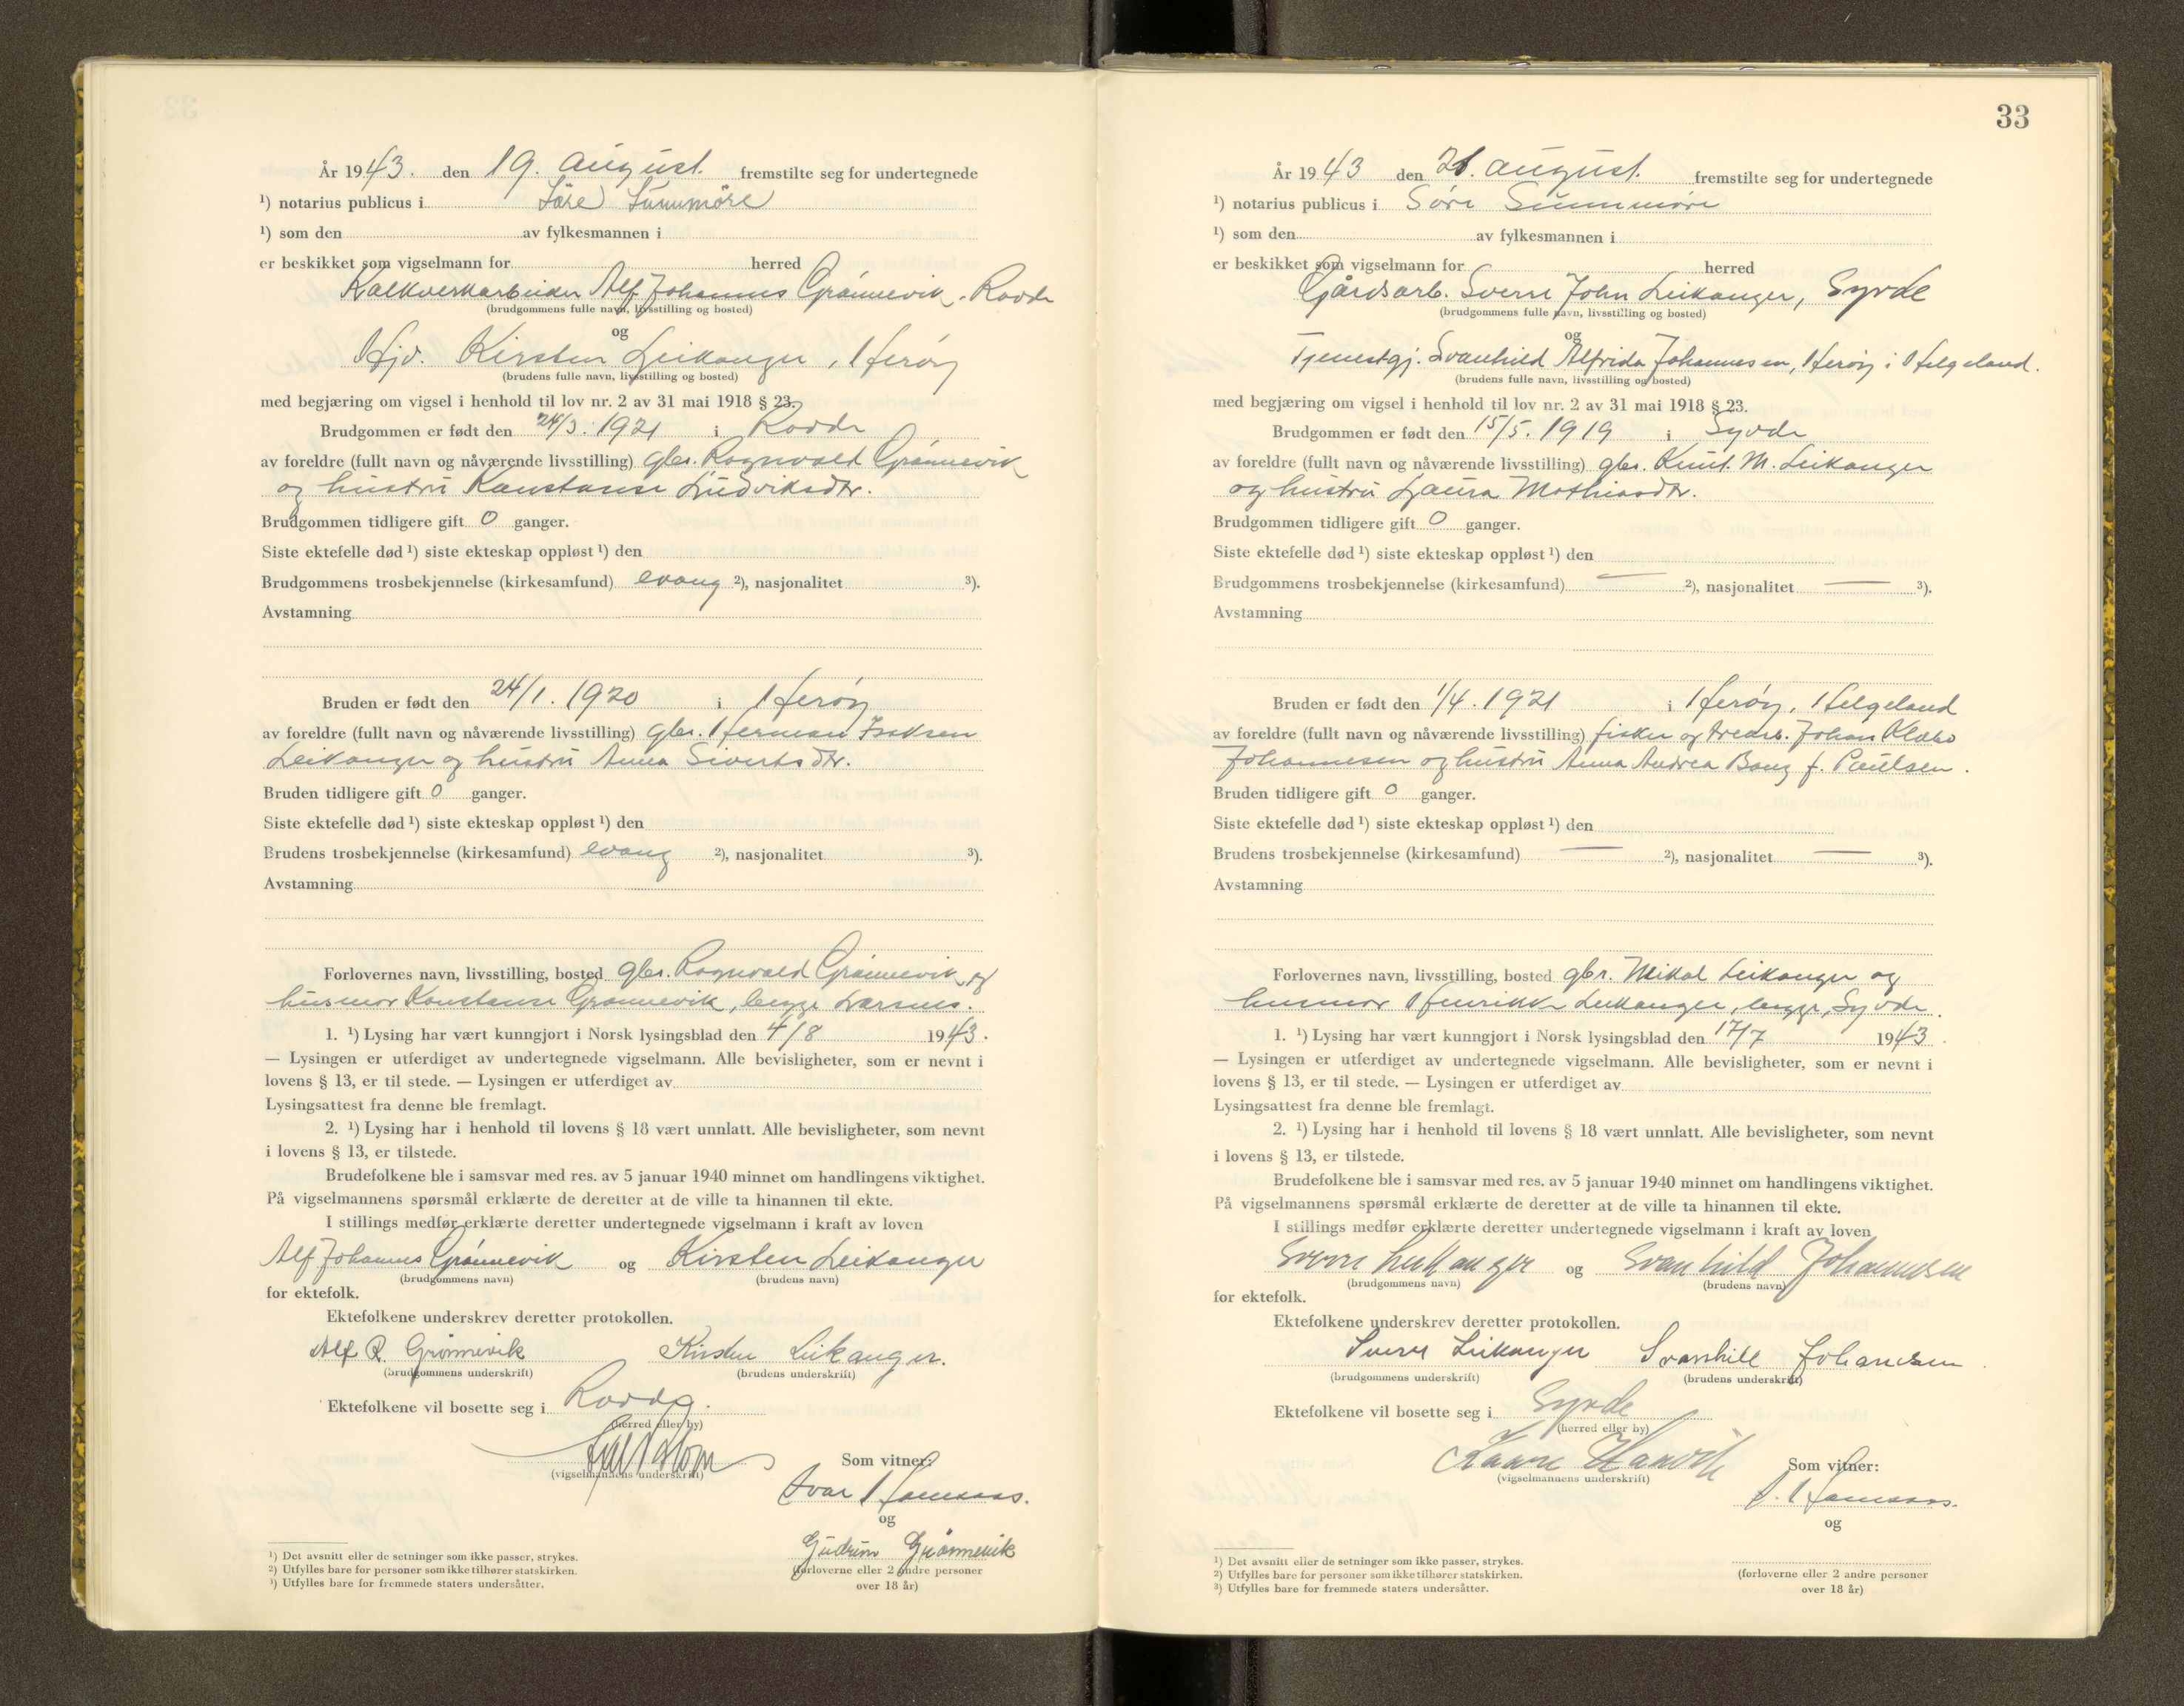 År 1943. den 19. august. fremstilte seg for undertegnede
¹) notarius publicus i Söre Sunnmöre
¹) som den av fylkesmannen i
er beskikket som vigselmann for herred
Kalkverkarbeider Alf Johannes Grönnevik, Rovde
(brudgommens fulle navn, livsstilling og bosted)
og
Hjv. Kirsten Leikanger, Heröy
(brudens fulle navn, livsstilling og bosted)
med begjæring om vigsel i henhold til lov nr. 2 av 31 mai 1918 § 23.
Brudgommen er født den 24/3. 1921 i Rovde
av foreldre (fullt navn og nåværende livsstilling) gbr. Ragnvald Grönnevik
og hustru Konstanse Ludviksdtr.
Brudgommen tidligere gift 0 ganger.
Siste ektefelle død ¹) siste ekteskap oppløst ¹) den
Brudgommens trosbekjennelse (kirkesamfund) evang ²), nasjonalitet ³).
Avstamning
Bruden er født den 24/1. 1920 i Heröy
av foreldre (fullt navn og nåværende livsstilling) gbr. Herman Isaksen
Leikanger og hustru Anna Sivertsdtr.
Bruden tidligere gift 0 ganger.
Siste ektefelle død ¹) siste ekteskap oppløst ¹) den
Brudens trosbekjennelse (kirkesamfund) evang ²), nasjonalitet ³).
Avstamning
Forlovernes navn, livsstilling, bosted gbr. Ragnvald Grönnevik og
husmor Konstanse Grönnevik, begge Larsnes.
1. ¹) Lysing har vært kunngjort i Norsk lysingsblad den 4/8 1943.
— Lysingen er utferdiget av undertegnede vigselmann. Alle bevisligheter, som er nevnt i
lovens § 13, er til stede. — Lysingen er utferdiget av
Lysingsattest fra denne ble fremlagt.
2. ¹) Lysing har i henhold til lovens § 18 vært unnlatt. Alle bevisligheter, som nevnt
i lovens § 13, er tilstede.
Brudefolkene ble i samsvar med res. av 5 januar 1940 minnet om handlingens viktighet.
På vigselmannens spørsmål erklærte de deretter at de ville ta hinannen til ekte.
I stillings medfør erklærte deretter undertegnede vigselmann i kraft av loven
Alf Johannes Grönnevik og Kirsten Leikanger
(brudgommens navn) (brudens navn)
for ektefolk.
Ektefolkene underskrev deretter protokollen.
Alf R. Grönnevik Kirsten Leikanger.
(brudgommens underskrift) (brudens underskrift)
Ektefolkene vil bosette seg i Rovde.
(herred eller by)
(vigselmannens underskrift)
Som vitner:
Ivar
og
Gudrun Grönnevik
(forloverne eller 2 andre personer
over 18 år)
¹) Det avsnitt eller de setninger som ikke passer, strykes.
²) Utfylles bare for personer som ikke tilhører statskirken.
³) Utfylles bare for fremmede staters undersåtter.
33
År 1943 den 21. august. fremstilte seg for undertegnede
¹) notarius publicus i Söre Sunnmöre
¹) som den av fylkesmannen i
er beskikket som vigselmann for herred
Gårdsarb. Sverre John Leikanger, Syvde
(brudgommens fulle navn, livsstilling og bosted)
og
Tjenestgj. Svanhild Alfrida Johannesen, Heröy i Helgeland.
(brudens fulle navn, livsstilling og bosted)
med begjæring om vigsel i henhold til lov nr. 2 av 31 mai 1918 § 23.
Brudgommen er født den 15/5. 1919 i Syvde
av foreldre (fullt navn og nåværende livsstilling) gbr. Knut M. Leikanger
og hustru Laura Mathiasdtr.
Brudgommen tidligere gift 0 ganger.
Siste ektefelle død ¹) siste ekteskap oppløst ¹) den
Brudgommens trosbekjennelse (kirkesamfund) — ²), nasjonalitet — ³).
Avstamning
Bruden er født den 1/4. 1921 i Heröy, Helgeland
av foreldre (fullt navn og nåværende livsstilling) fisker og Johan Klæbo
Johannesen og hustru Anna Andrea Bang f. Paulsen.
Bruden tidligere gift 0 ganger.
Siste ektefelle død ¹) siste ekteskap oppløst ¹) den
Brudens trosbekjennelse (kirkesamfund) — ²), nasjonalitet — ³).
Avstamning
Forlovernes navn, livsstilling, bosted gbr. Mikal Leikanger og
husmor Henrikke Leikanger, begge, Syvde.
1. ¹) Lysing har vært kunngjort i Norsk lysingsblad den 17/7 1943.
— Lysingen er utferdiget av undertegnede vigselmann. Alle bevisligheter, som er nevnt i
lovens § 13, er til stede. — Lysingen er utferdiget av
Lysingsattest fra denne ble fremlagt.
2. ¹) Lysing har i henhold til lovens § 18 vært unnlatt. Alle bevisligheter, som nevnt
i lovens § 13, er tilstede.
Brudefolkene ble i samsvar med res. av 5 januar 1940 minnet om handlingens viktighet.
På vigselmannens spørsmål erklærte de deretter at de ville ta hinannen til ekte.
I stillings medfør erklærte deretter undertegnede vigselmann i kraft av loven
Sverre Leikanger og Svanhild Johannesen
(brudgommens navn) (brudens navn)
for ektefolk.
Ektefolkene underskrev deretter protokollen.
Sverre Leikanger Svanhill Johansen
(brudgommens underskrift) (brudens underskrift)
Ektefolkene vil bosette seg i Syvde
(herred eller by)
Kaare
(vigselmannens underskrift)
Som vitner:
og
(forloverne eller 2 andre personer
over 18 år)
¹) Det avsnitt eller de setninger som ikke passer, strykes.
²) Utfylles bare for personer som ikke tilhører statskirken.
³) Utfylles bare for fremmede staters undersåtter.